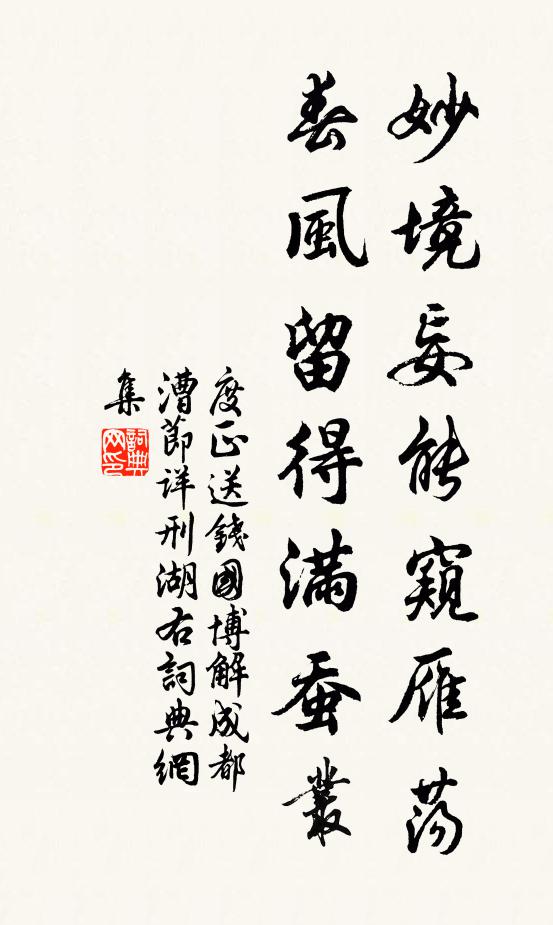 妙境妄能窺雁蕩
春風留得滿蚕叢
度正送錢國博解成都
漕節詳刑湖右詞典網
集
詞典网印